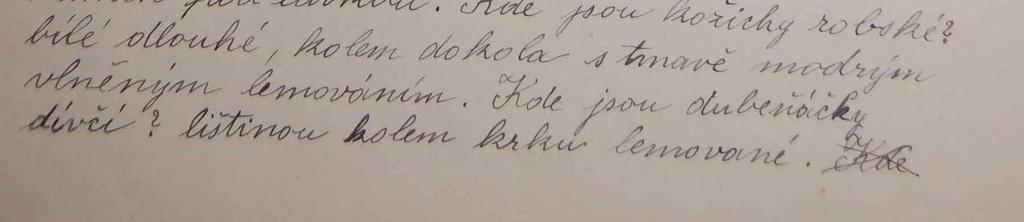 Kde jsou kožichy robské?
bílé dlouhé, kolem dokola s tmavě modrým
vlněným lemováním. Kde jsou dubeňáčky
dívčí? lištinou kolem krku lemované. Kde